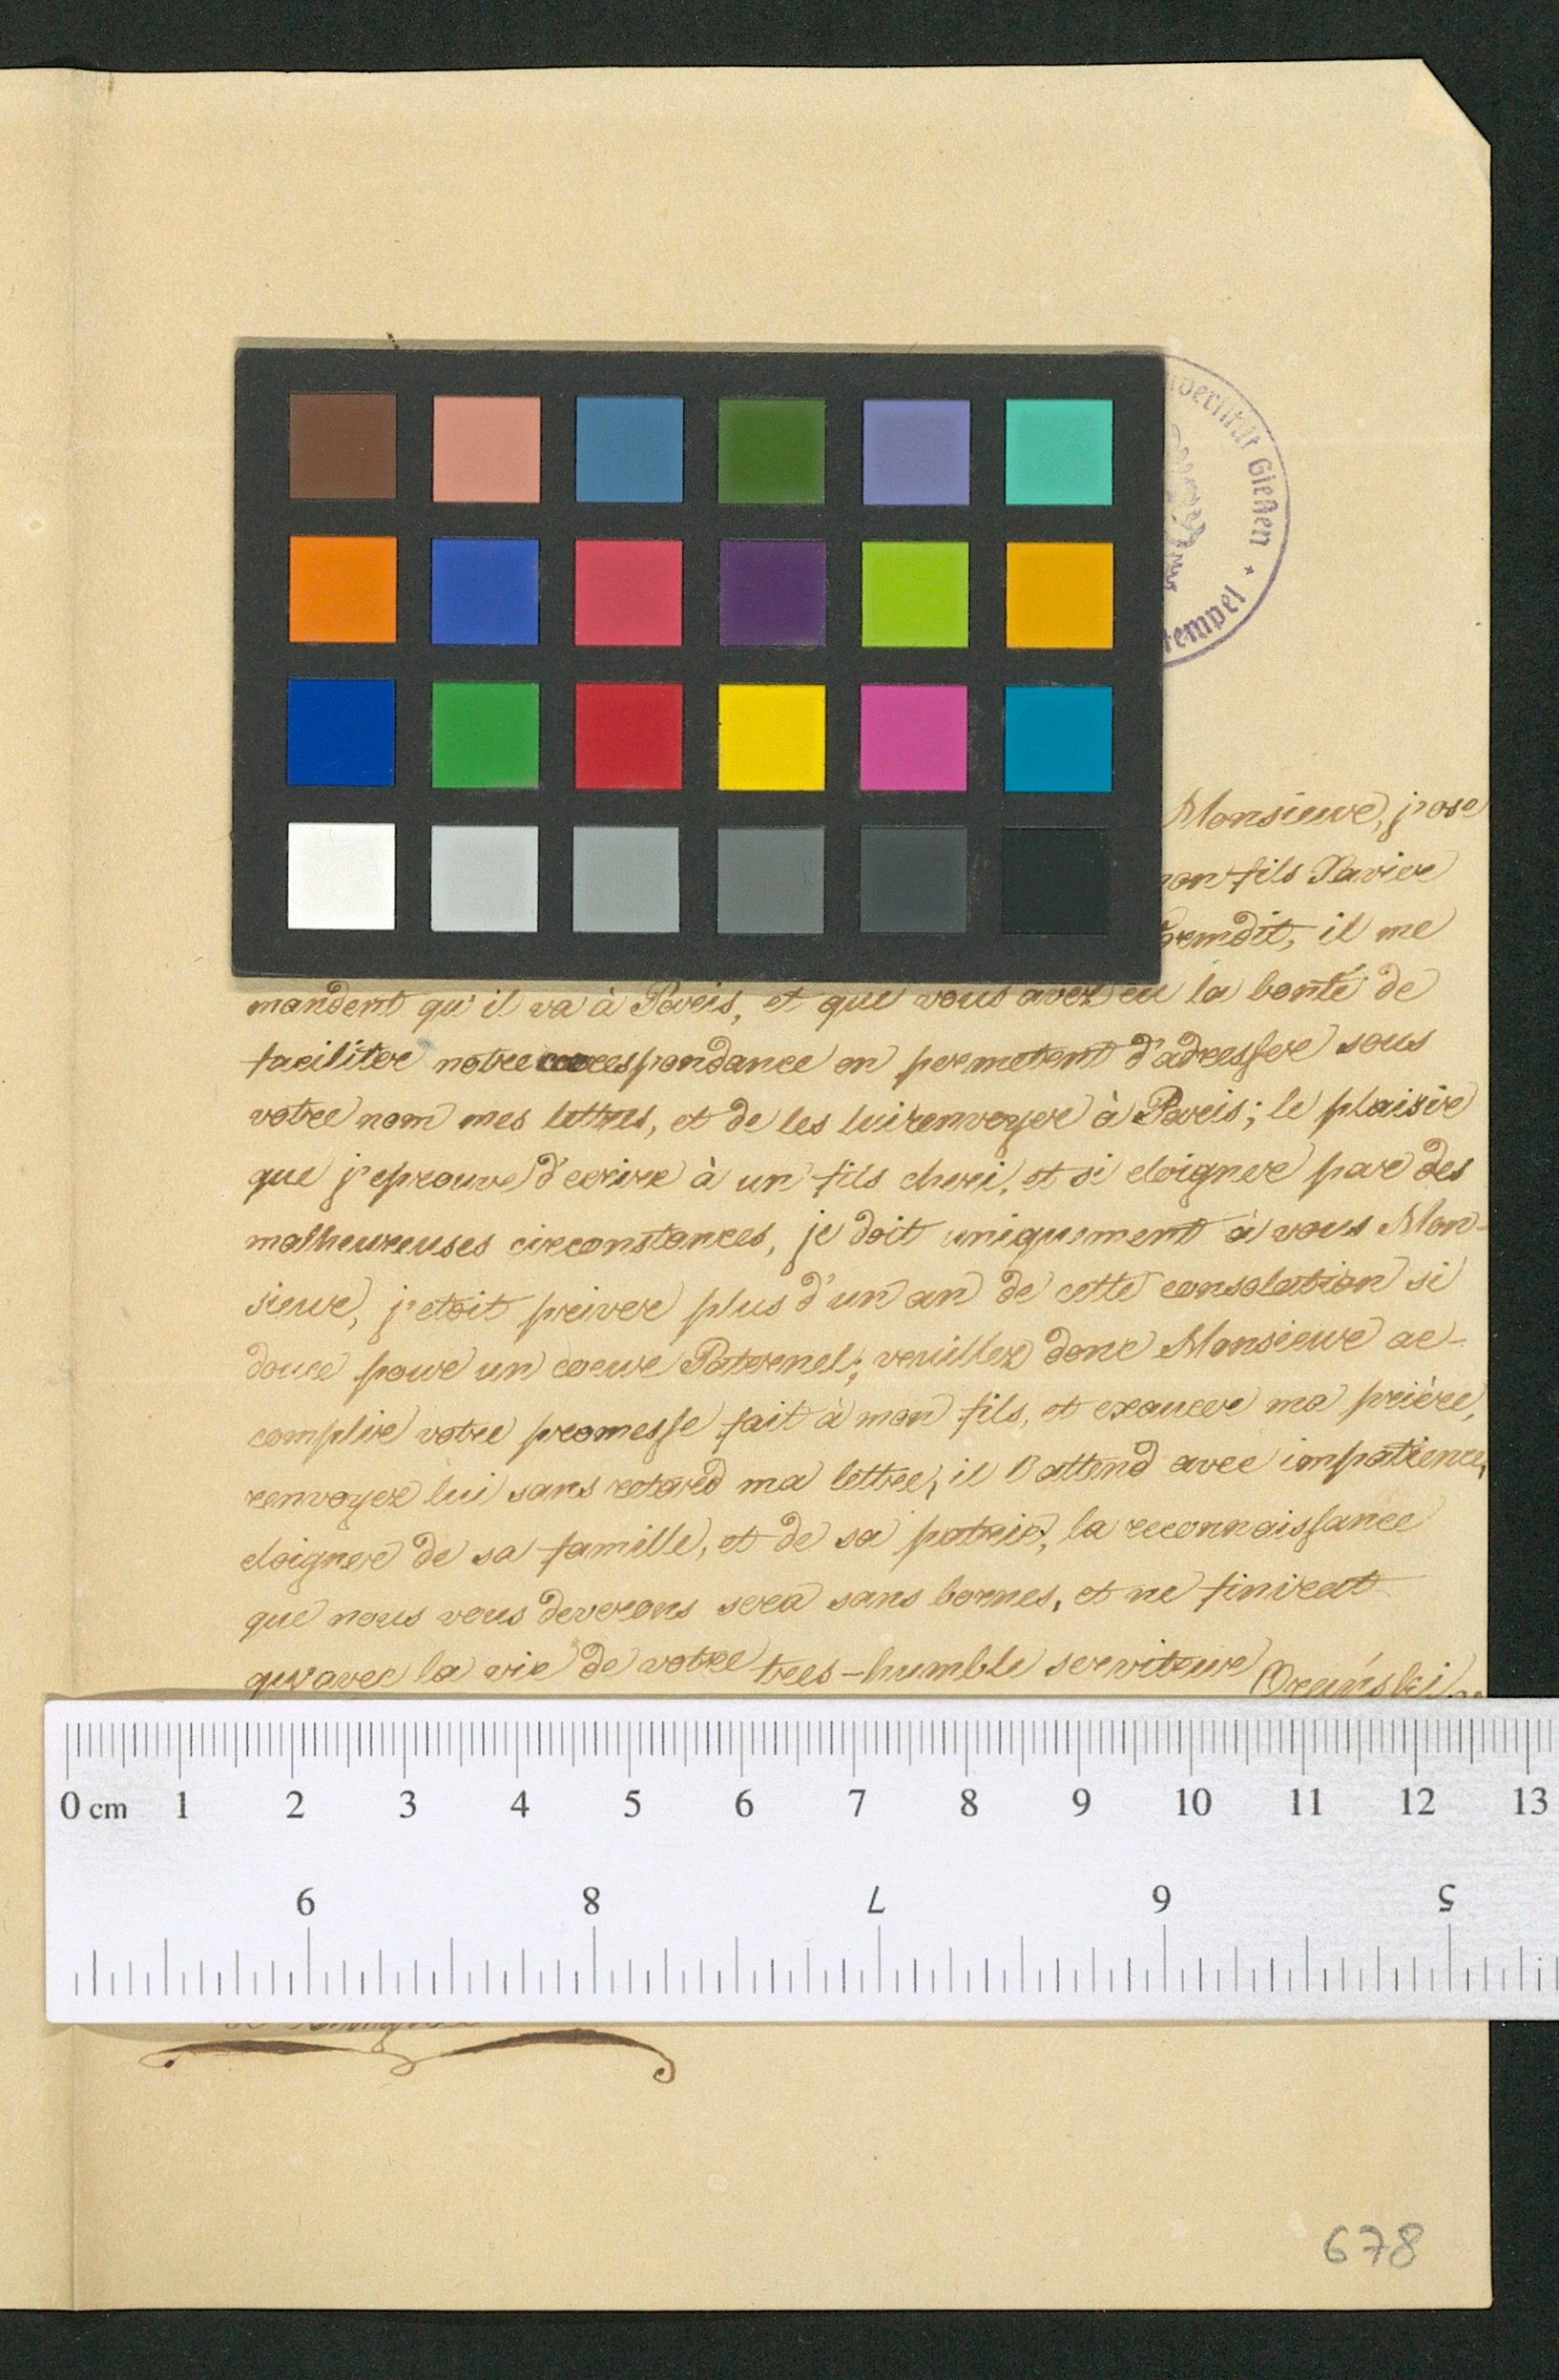 versität Gießen *
tempel
Monsieure, j'ose
mon fils Xavier
il me
mandent qu'il va à Pareis, et que vous avez eu la bonté de
faciliter notre correspondance en permetent d'adresser sous
votre nom mes lettres, et de les lui renvoyer à Pareis; le plaisire
que j'eprouve d'ecrire à un fils cheri, et si eloignere par des
malheureuses circonstances, je doit uniquement à vous Mon-
sieure, j'etoit privere plus d'un an de cette consolation si
douce pour un coeure Paternel; veuillez donc Monsieure ac-
complire votre promesse fait à mon fils, et exaucer ma prière,
renvoyez lui sans retard ma lettre, il l'attend avec impatience,
eloignere de sa famille, et de sa patrie, la reconnaissance
que nous vous deverons sera sans bornes, et ne finirat
qu'avec la vie de votre tres-humble serviteure
0 cm 1 2 3 4 5 6 7 8 9 10 11 12 13
9 8 7 6 5
678